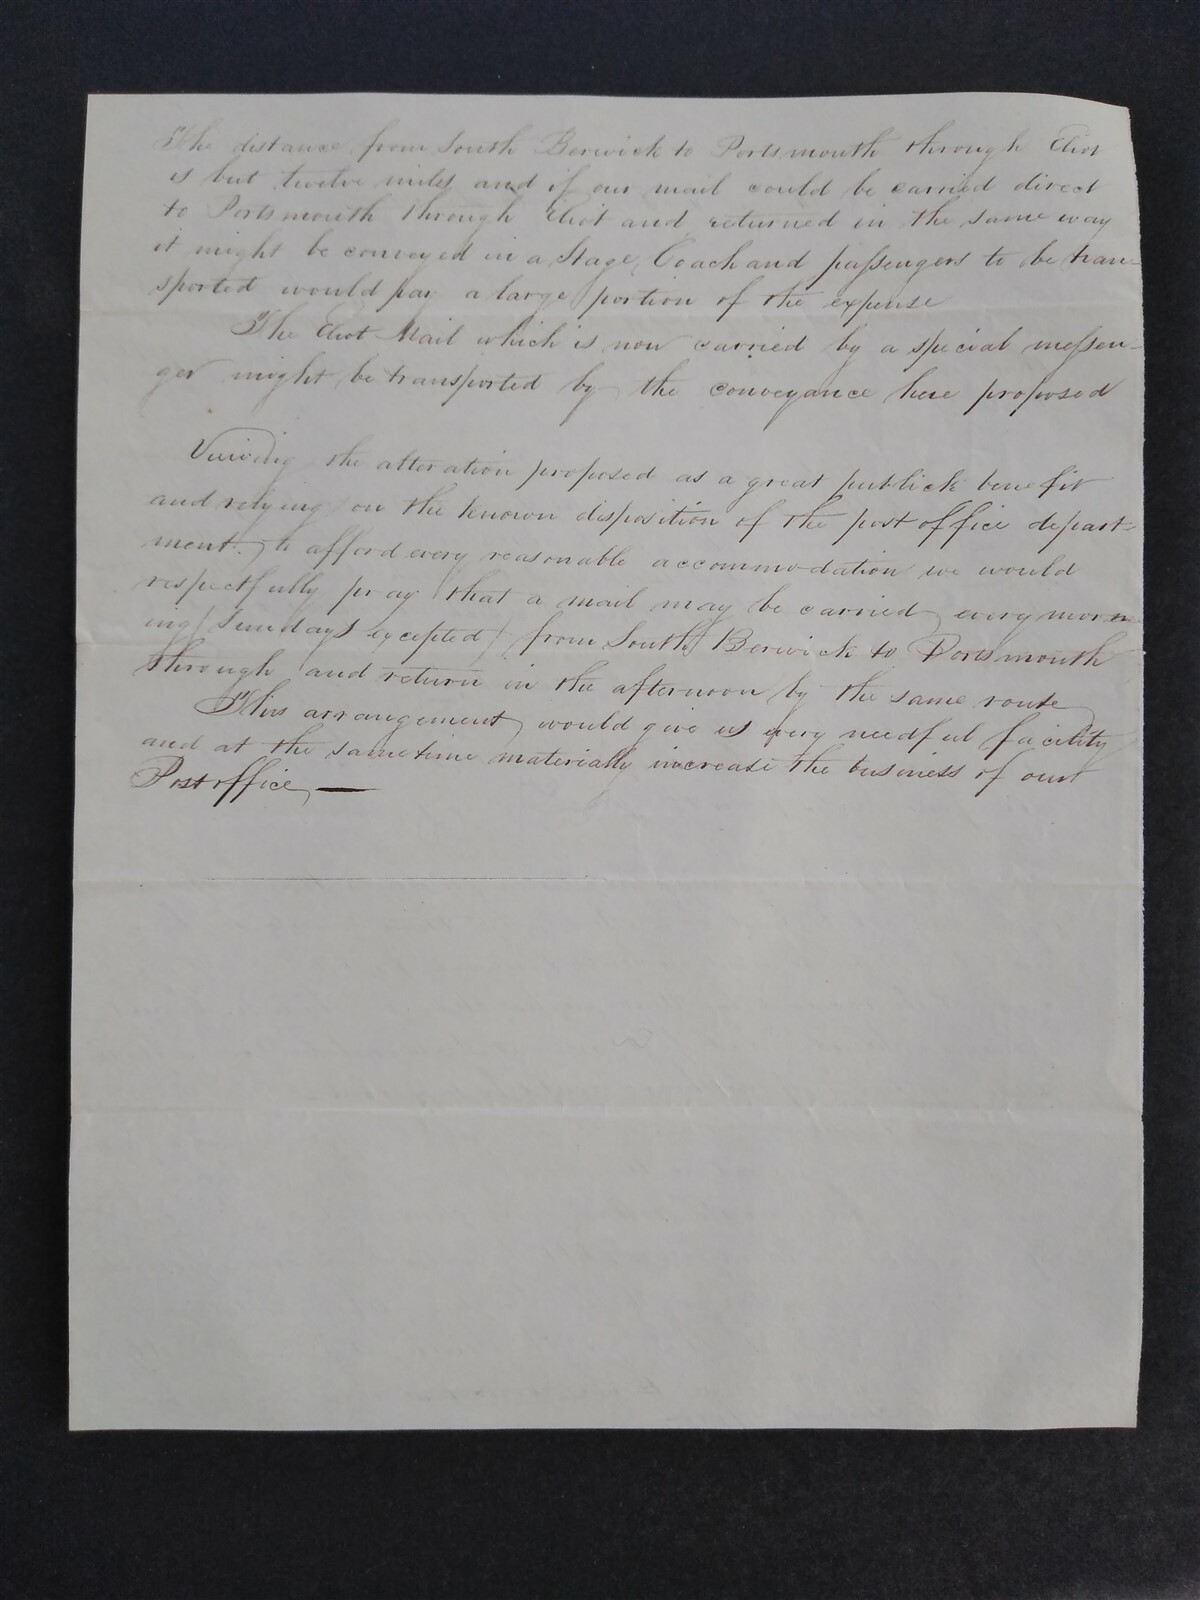 The distance from South Berwick to Portsmouth through Eliot
is but twelve miles and if our mail could be carried direct
to Portsmouth through Eliot and returned in the same way
it might be conveyed in a Stage Coach and passengers to be tran-
sported would pay a large portion of the expense
The Eliot Mail which is now carried by a special messen-
ger might be transported by the conveyance here proposed
Vieiwing the alteration proposed as a great publick benefit
and relying on the known disposition of the post office depart-
ment. to afford every reasonable accommodation we would
respectfully pray that a mail may be carried every morn
ing (Sundays excepted) from South Berwick to Portsmouth
through and return in the afternoon by the same route
This arrangement would give us every needful facility
and at the same time materially increase the business of our
Post office, —